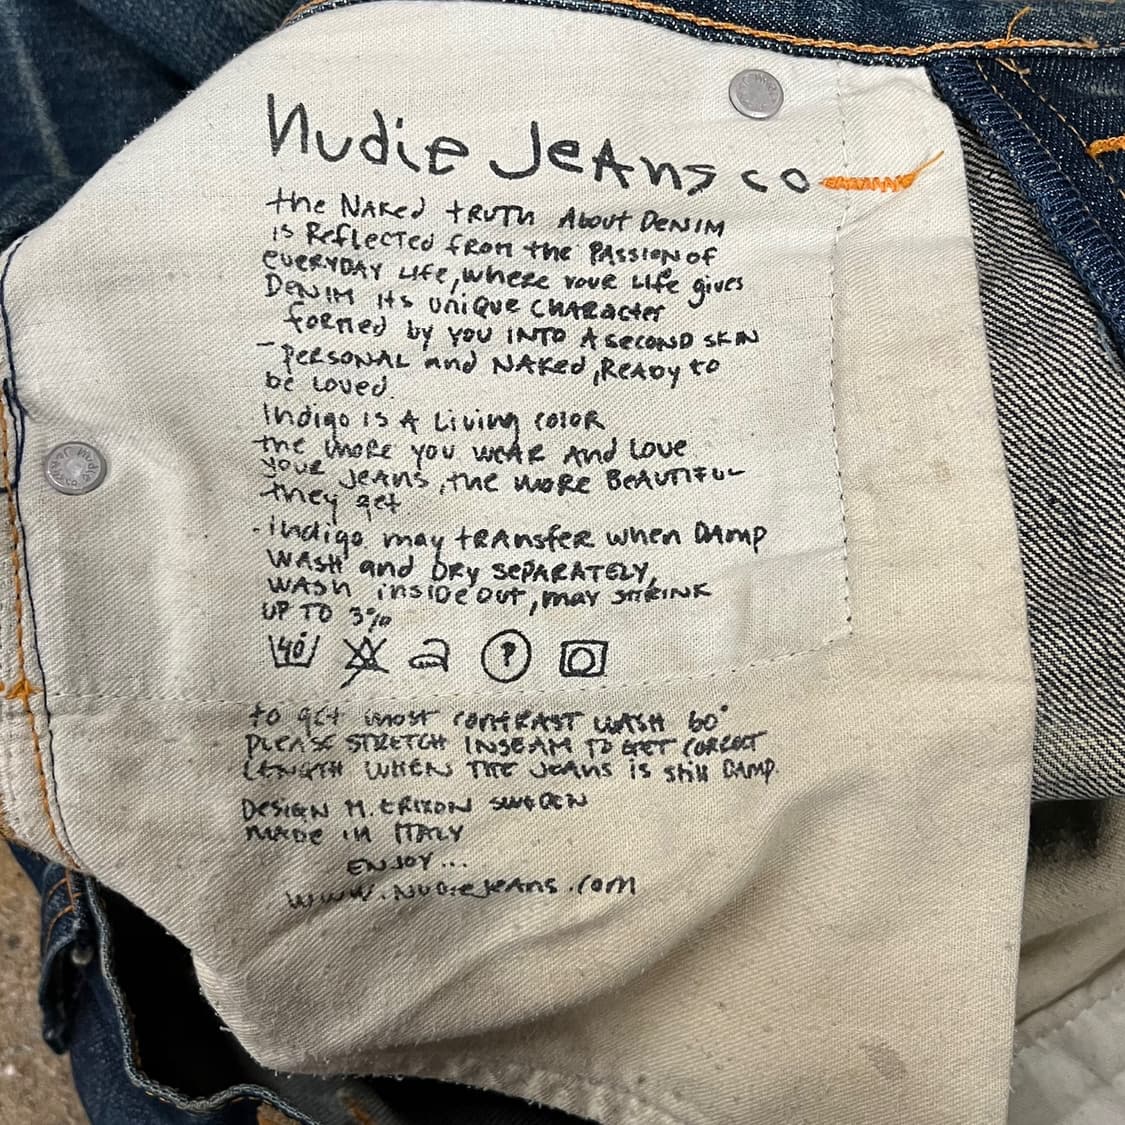 Nudie Jeans co
the NAKed tRUTH About DENIM
is Reflected from the PASSION of
eveRYDAY Life, where youR Life gives
DENIM its uniQue CHARActer
formed by YOU INTO A SECOND SKIN
- PERSONAL and NAKed, ReADy to
be Loved.
Indigo is A Living coloR
the more you weAR And Love
youR JEANS, the moRe BeAUTIFUL
they get.
- indigo may tRAnsfeR when DAmp
WASH and DRY SEPARATELY,
WASH inside out, may SHRINK
UP TO 3%
40 ?
to get most CONTRAST WASH 60°
PLEASE STRETCH INSEAM TO GET CORRECT
LENGTH WHEN THE JeANS is still DAMP.
DESIGN M. ERIXON SWEDEN
MADE IN ITALY
ENJOY...
WWW.NUDIEJEANS.COM